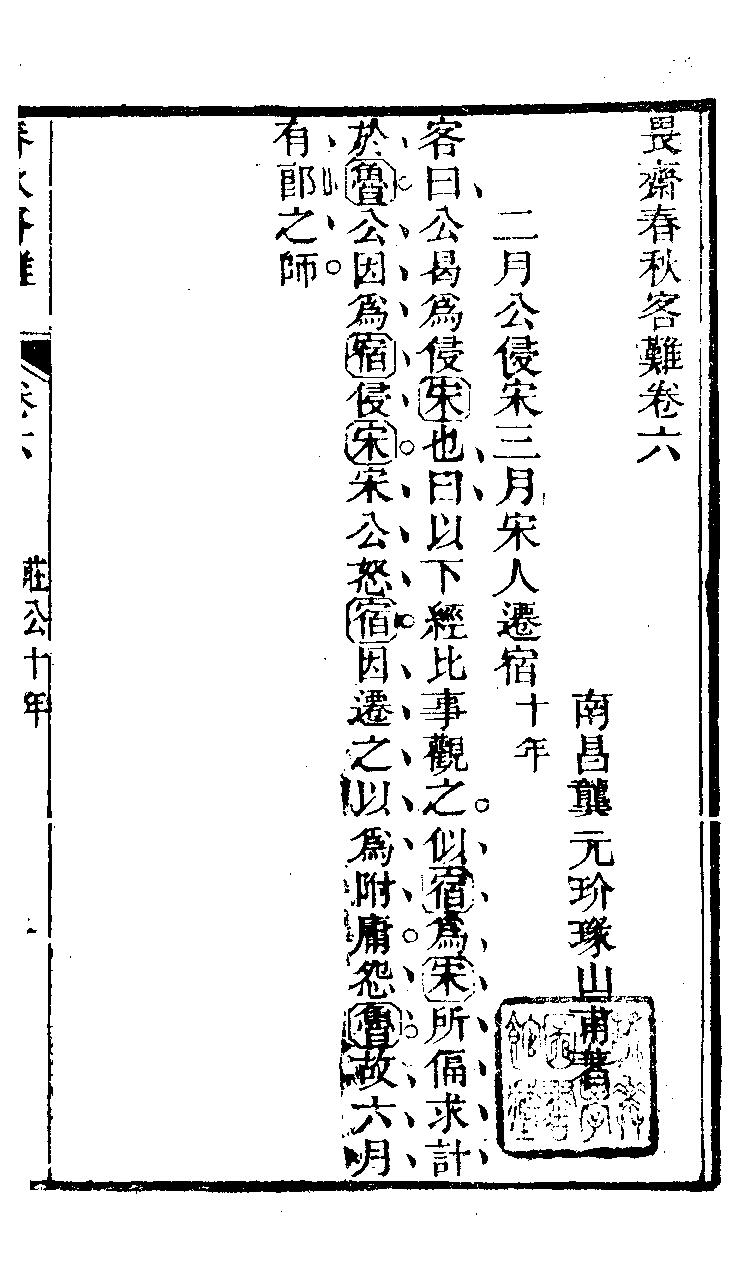 畏齋春秋客難卷六
南昌龔元玠瑑山甫著
二月公侵宋三月宋人遷宿十年
客曰公曷爲侵宋也曰以下經比事觀之似宿爲宋所偪求計
於魯公因爲宿侵宋宋公怒宿因遷之以爲附庸怨魯故六月
有郎之師
卷六
莊公十年